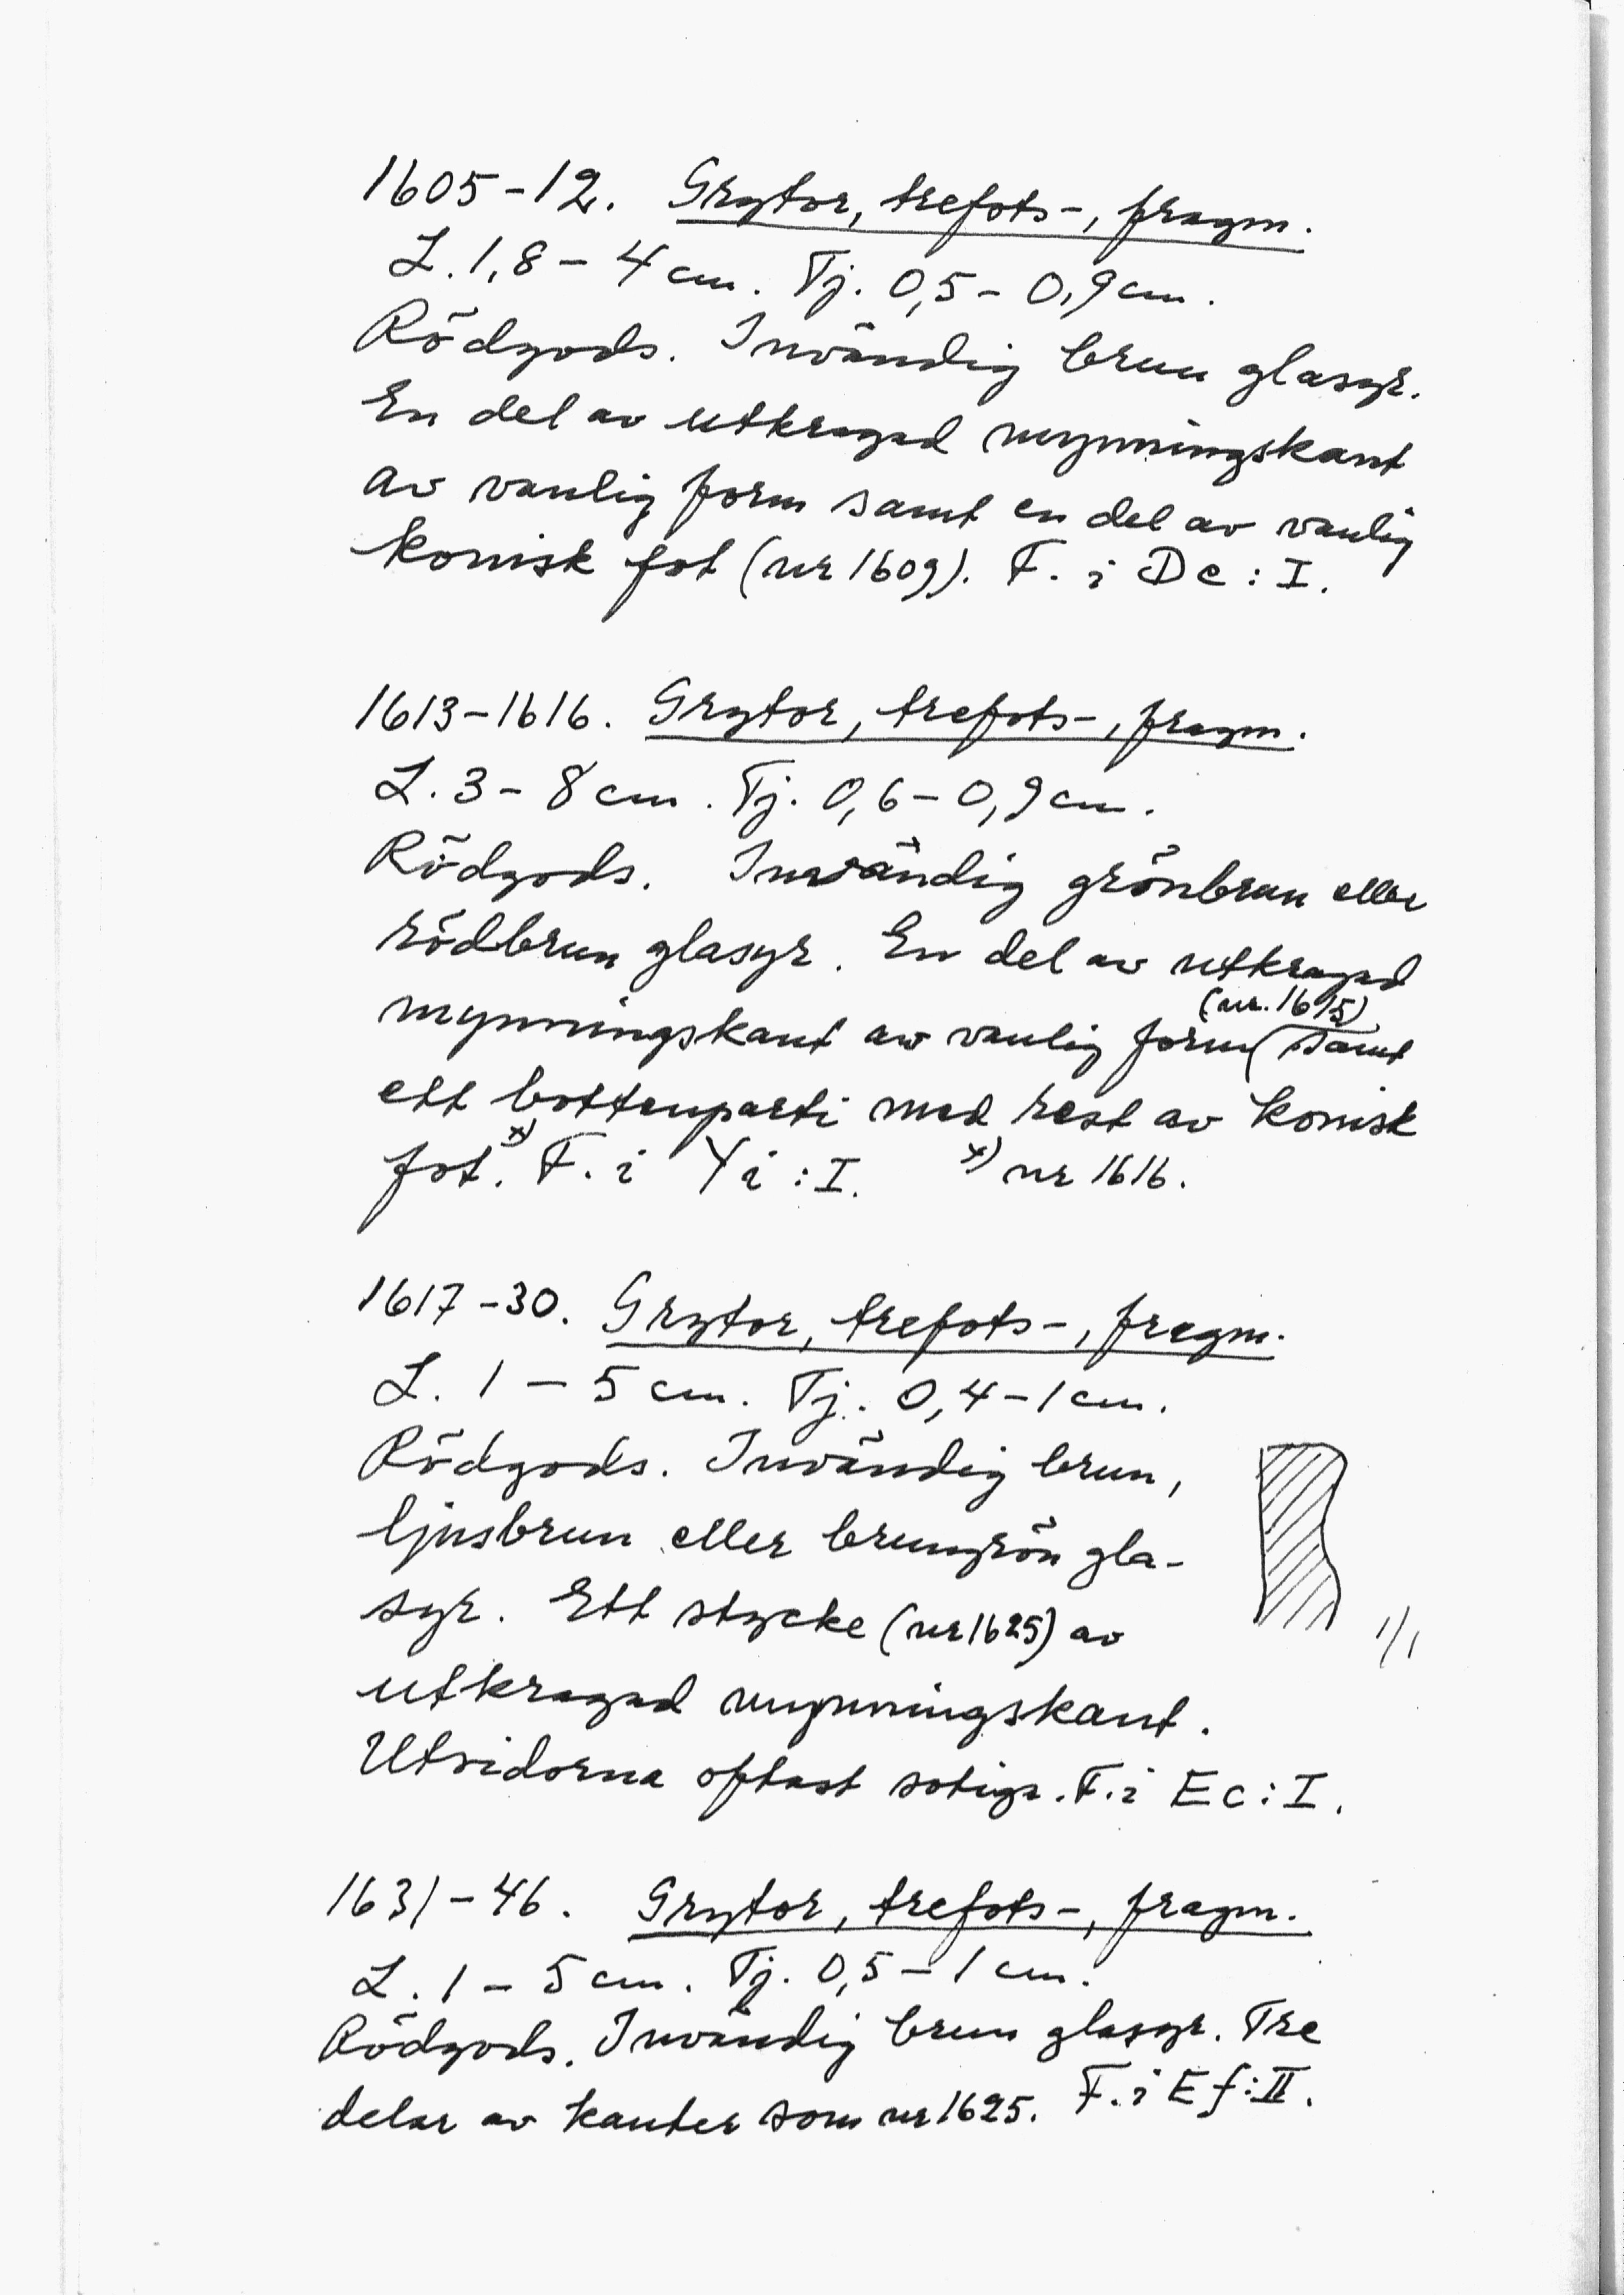 1605-12. Grytor, trefots-, fragm.
L. 1,8 - 4 cm. Tj. 0,5 - 0,9 cm.
Rödgods. Invändig brun glasyr.
En del av utkragad mynningskant
av vanlig form samt en del av vanlig
konisk fot (nr 1609). F. i De : I.
1613-1616. Grytor, trefots-, fragm.
L. 3 - 8 cm. Tj. 0,6 - 0,9 cm.
Rödgods. Invändig grönbrun eller
rödbrun glasyr. En del av utkragad
(nr. 1615)
mynningskant av vanlig form samt
ett bottenparti med rest av konisk
fot. x) F. i Yi : I. x) nr 1616.
1617-30. Grytor, trefots-, fragm.
L. 1 - 5 cm. Tj. 0,4 - 1 cm.
Rödgods. Invändig brun,
ljusbrun eller brungrön gla-
syr. Ett stycke (nr 1625) av
1/1
utkragad mynningskant.
Utsidorna oftast sotiga. F. i Ec : I.
1631-46. Grytor, trefots-, fragm.
L. 1 - 5 cm. Tj. 0,5 - 1 cm.
Rödgods. Invändig brun glasyr. Tre
delar av kanter som nr 1625. F. i Ef : II.